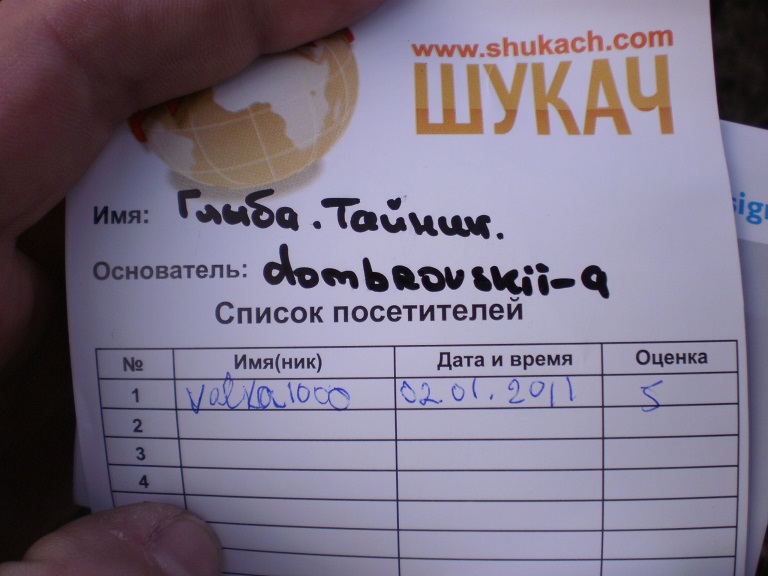 www.shukach.com
ШУКАЧ
Имя: Глыба. Тайник.
Основатель: dombrovskii-a
Список посетителей
№ Имя(ник) Дата и время Оценка
1 valka1000 02.01.2011 5
2
3
4